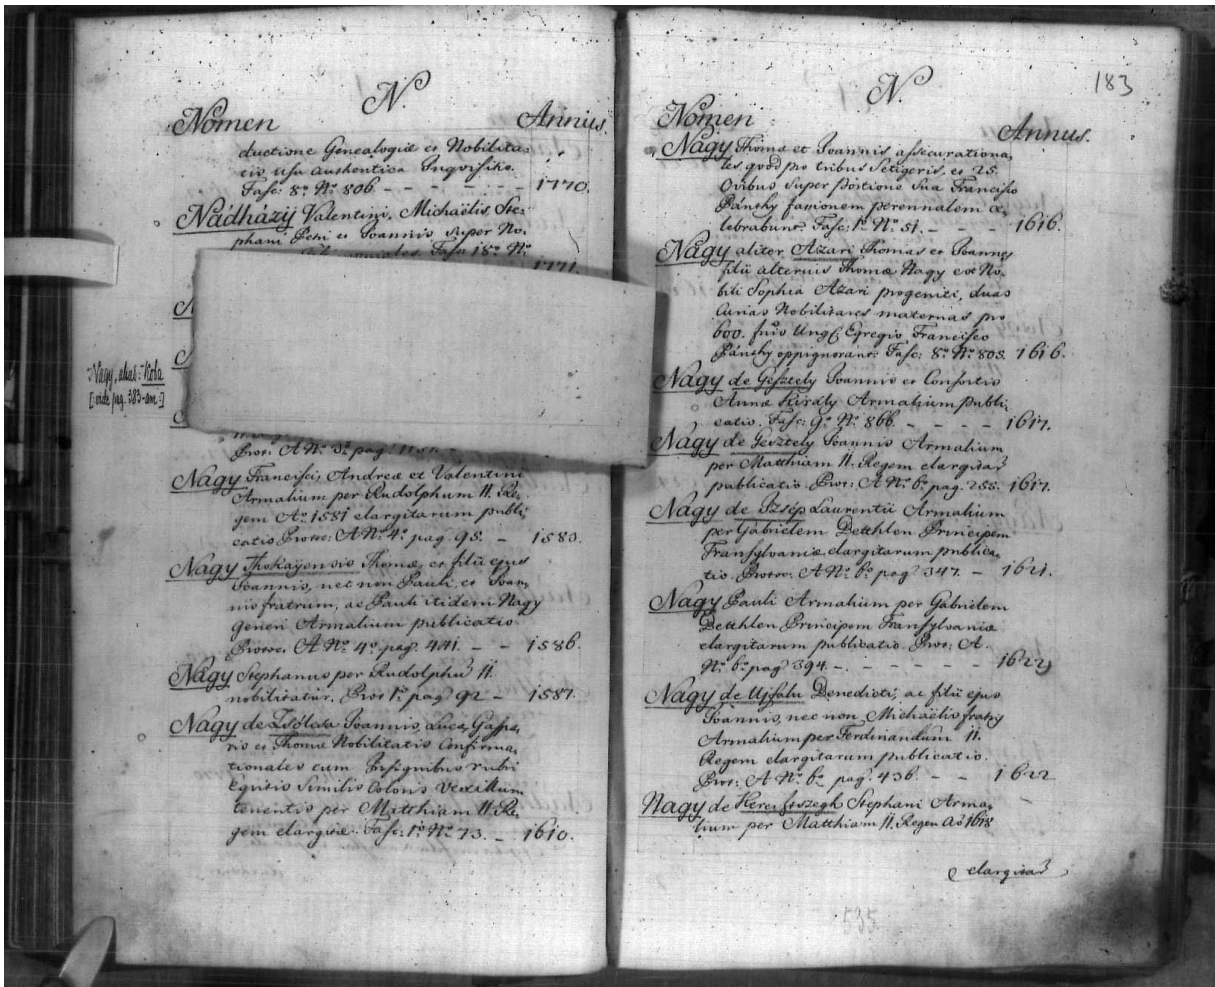 N.
Nomen Annus.
ductione Genealogiæ et Nobilita-
tis usu authentica Inquisitio.
Fasc: 8º Nº 806. - - - - - - 1770.
Nádházÿ Valentini, Michaëlis, Ste-
phani Petri et Joannis super No-
Fasc. 18º Nº
1771.
Nagy, alias: Koba
[: vide pag. 383-am :]
Prot: A Nº 3º pag.
Nagy Francisci, Andreæ et Valentini
Armalium per Rudolphum II. Re-
gem Aº 1581 elargitarum publi-
catio Protoc: A Nº 4º pag. 95. - 1583.
Nagy Thokajensis Thomæ, et filii ejus
Joannis, nec non Pauli, et Joan-
nis fratrum, ac Pauli itidem Nagy
generi Armalium publicatio
Protoc: A Nº 4º pag. 441. - - 1586.
Nagy Stephanus per Rudolphū II.
nobilitatur. Prot 1º pag. 92 - 1587.
Nagy de Zsólcza Joannis, Lucæ, Gaspa-
ris et Thomæ Nobilitatis Confirma-
tionales cum Insignibus rubri
Equitis similis Coloris Vexillum
tenentis per Matthiam II. Re-
gem elargitæ. Fasc: 1º Nº 73. - 1610.
N. 183
Nomen Annus.
Nagy Thomæ et Joannis assecurationa-
les qvod pro tribus Setigeris, et 25.
Ovibus super portione sua Francisco
Pánthy fassionem perennalem ce-
lebrabunt. Fasc: 1º Nº 51. - - - 1616.
Nagy aliter Azari Thomas et Joannes
filii alterius Thomæ Nagy ex No-
bili Sophia Azari progeniti, duas
Curias Nobilitares maternas pro
600. fnis Ung. Egregio Francisco
Pánthy oppignorant. Fasc: 8º Nº 803. 1616.
Nagy de Gesztely Joannis et Consortis
Annæ Király Armalium publi-
catio. Fasc: 9º Nº 866. - - - - 1617.
Nagy de Gesztely Joannis Armalium
per Matthiam II. Regem elargitar
publicatio. Prot: A Nº 6º pag. 255. 1617.
Nagy de Izsép Laurentii Armalium
per Gabrielem Betthlen Principem
Transylvaniæ elargitarum publica-
tio. Protoc: A Nº 6º pag. 347. - 1621.
Nagy Pauli Armalium per Gabrielem
Betthlen Principem Transylvaniæ
elargitarum publicatio. Prot: A.
Nº 6º pag 394. - - - - - - 1622
Nagy de Ujfalu Benedicti, ac filii ejus
Joannis, nec non Michaëlis fratris
Armalium per Ferdinandum II.
Regem elargitarum publicatio.
Prot: A Nº 6º pag. 436. - - 1622
Nagy de Stephani Arma-
lium per Matthiam II. Regem Aō 1618
elargitar
535